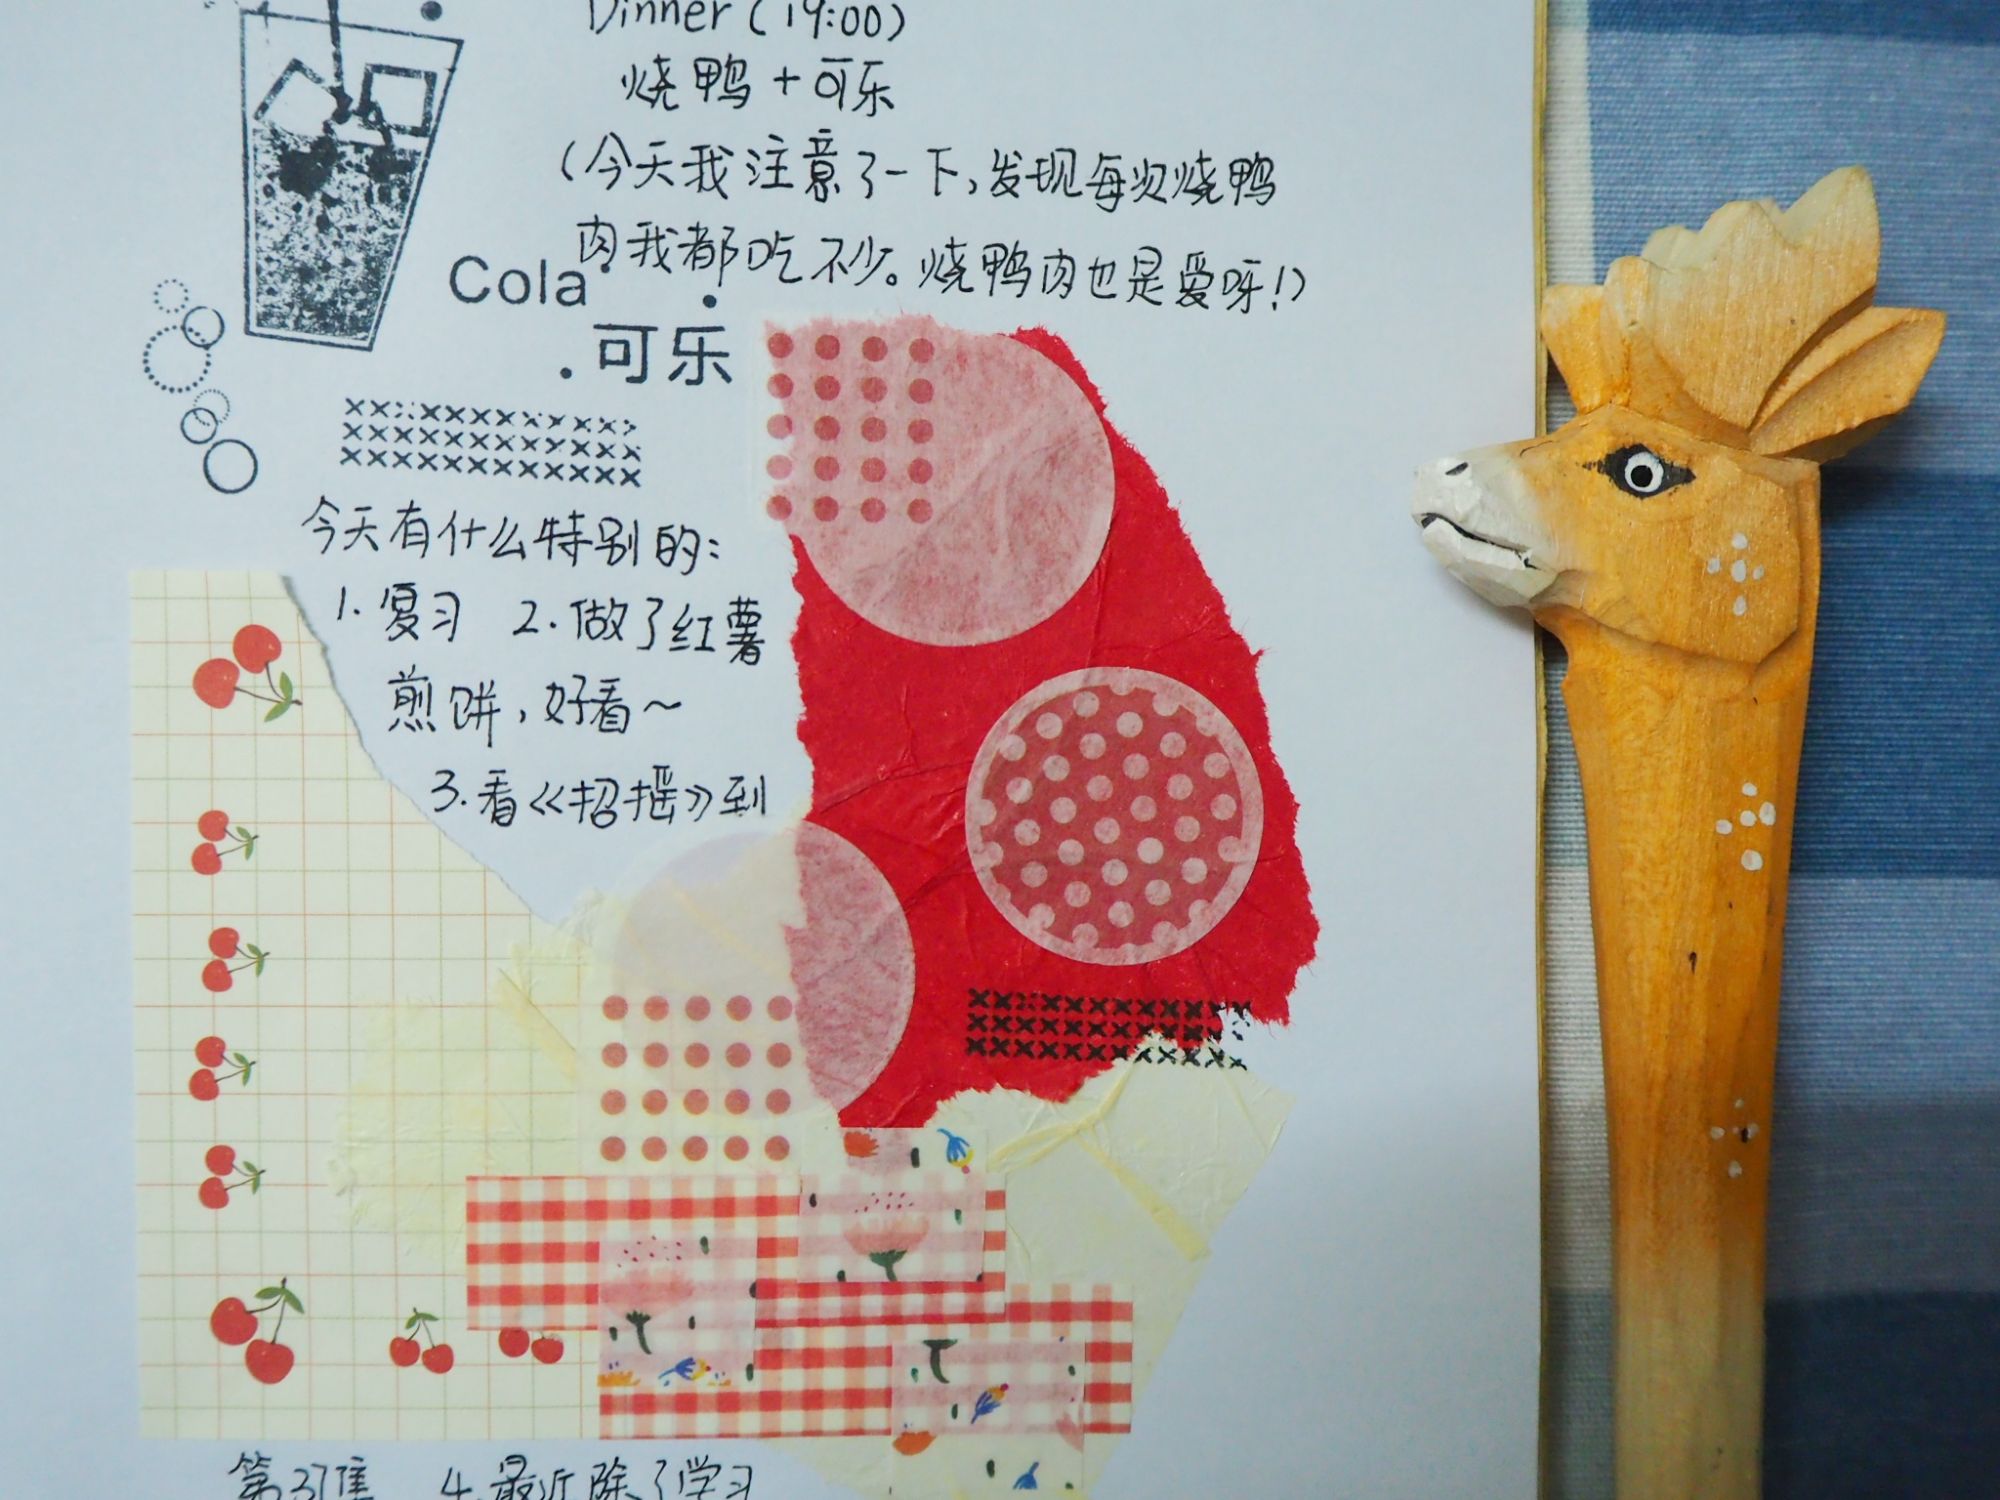 Dinner (19:00)
烧鸭＋可乐
(今天我注意了一下,发现每次烧鸭
肉我都吃不少。烧鸭肉也是爱呀!)
Cola
可乐
今天有什么特别的:
1.复习 2.做了红薯
煎饼,好看~
3.看《招摇》到
第37集 4.最近除了学习